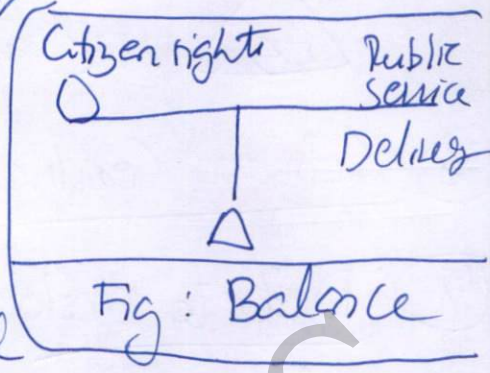 Citizen rights
Public
Service
Delivery
Fig : Balance